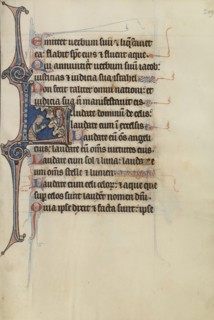 Emittet verbum suum et liquefaciet
ea: flabit sps eius et fluent aque.
Qui annunciat verbum suum iacob:
iusticias et iudicia sua israhel.
Non fecit taliter omni nationi: et
iudicia sua non manifestavit eis.
Laudate dominum de celis:
laudate eum in excelsis.
Laudate eum omnes angeli
eius: laudate eum omnes virtutes eius.
Laudate eum sol et luna: laudate
eum omnes stelle et lumen.
Laudate eum celi celorum: et aque que
super celos sunt laudent nomen domini.
Quia ipse dixit et facta sunt: ipse